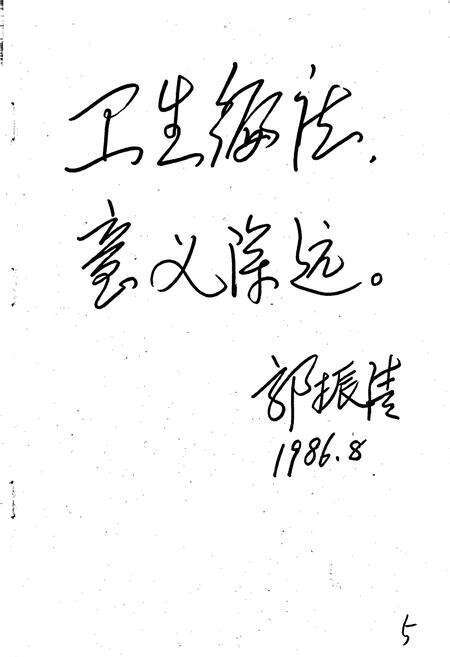 卫生编志，
意义深远。
郭振清
1986.8
5